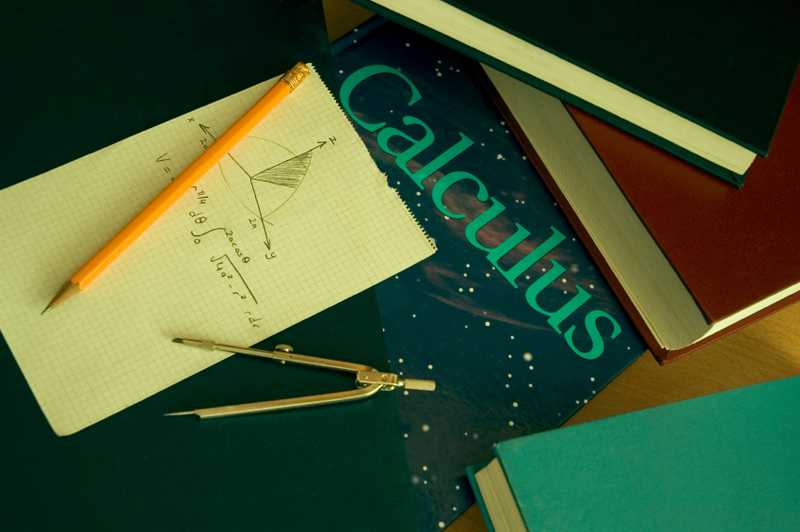 Calculus
x
2a
z
2a
y
V =
π/4
dθ ∫₀
2a cos θ
√4a² - r² r dr